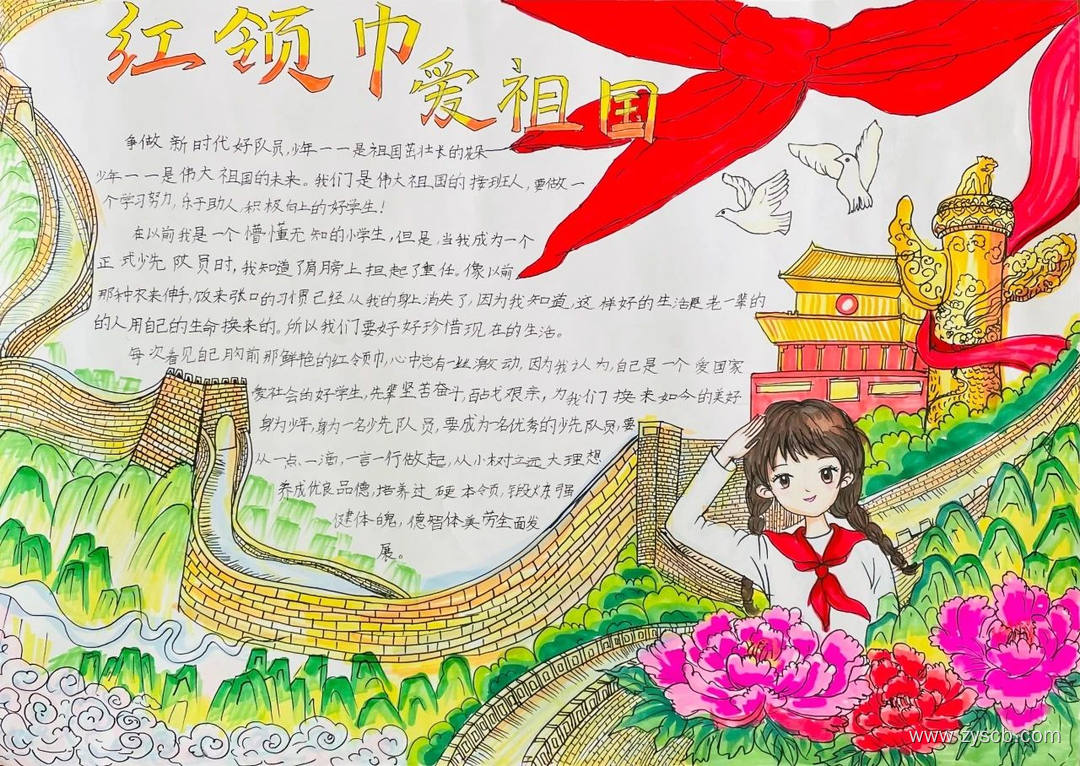 红领巾
爱祖国
争做新时代好队员,少年一一是祖国茁壮长的花朵
少年一一是伟大祖国的未来。我们是伟大祖国的接班人,要做一
个学习努力,乐于助人,积极向上的好学生!
在以前我是一个懵懂无知的小学生,但是,当我成为一个
正式少先队员时,我知道了肩膀上担起了重任。像以前
那种衣来伸手,饭来张口的习惯已经从我的身上消失了,因为我知道,这样好的生活是老一辈的
的人用自己的生命换来的,所以我们要好好珍惜现在的生活。
每次看见自己胸前那鲜艳的红领巾,心中总有一丝激动,因为我认为,自己是一个爱国家
爱社会的好学生,先辈坚苦奋斗,百战艰亲,为我们换来如今的美好
身为少年,身为一名少先队员,要成为一名优秀的少先队员,要
从一点、一滴,一言一行做起,从小树立远大理想
养成优良品德,培养过硬本领,锻炼强
健体魄,德智体美劳全面发
展。
www.zyscb.com